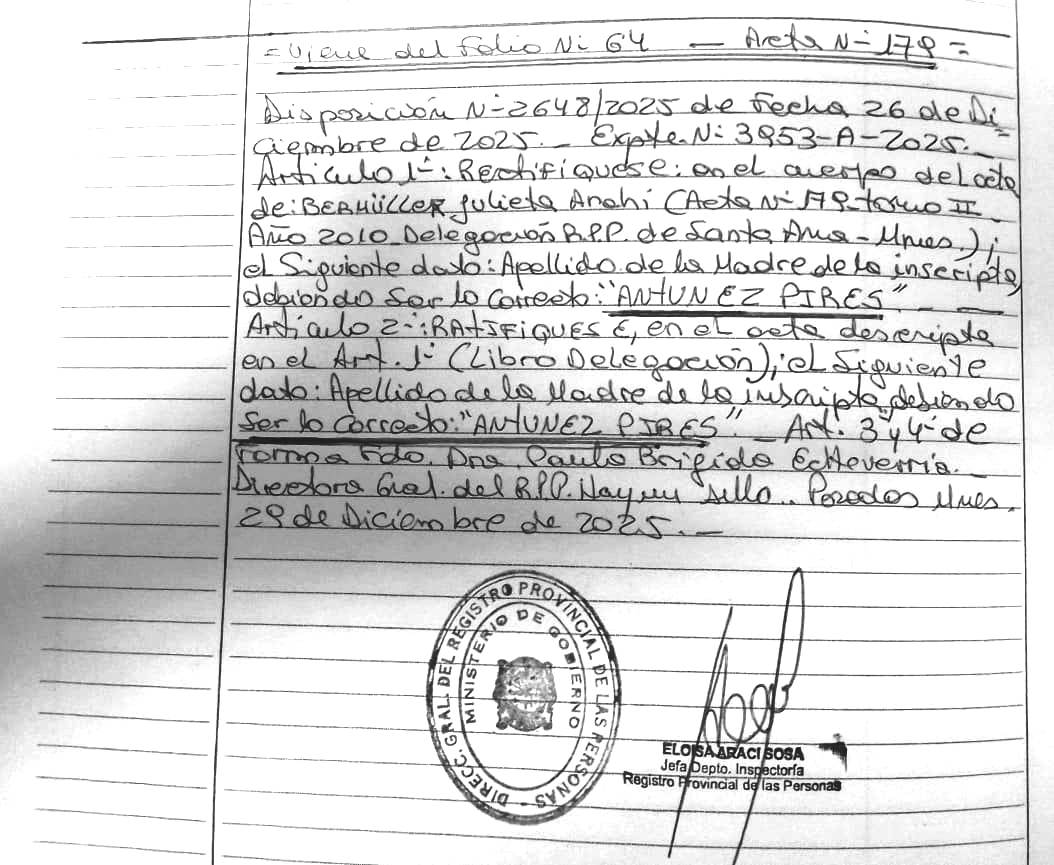 = Viene del Folio Nº 64 — Acta Nº 179 =
Disposición Nº 2648/2025 de Fecha 26 de Di=
ciembre de 2025._ Expte. Nº 3953-A-2025._
Artículo 1º: Rectifíquese: en el cuerpo del acta
de: BERMÜLLER Julieta Anahí (Acta Nº 179 - tomo II -
Año 2010 - Delegación R.P.P. de Santa Ana - Mnes.);
el Siguiente dato: Apellido de la Madre de la inscripta,
debiendo Ser lo Correcto: "ANTUNEZ PIRES". _ _
Artículo 2º: RATIFIQUESE, en el acta descripta
en el Art. 1º (Libro Delegación); el Siguiente
dato: Apellido de la Madre de la inscripta, debiendo
Ser lo Correcto: "ANTUNEZ PIRES". _ Art. 3º y 4º de
forma Fdo. Dra. Paula Brigida Echeverria.
Directora Gral. del R.P.P. Hay un sello._ Posadas Mnes.
29 de Diciembre de 2025._
DIRECC. GRAL. DEL REGISTRO PROVINCIAL DE LAS PERSONAS -
MINISTERIO DE GOBIERNO
ELOISA ARACI SOSA
Jefa Depto. Inspectoría
Registro Provincial de las Personas